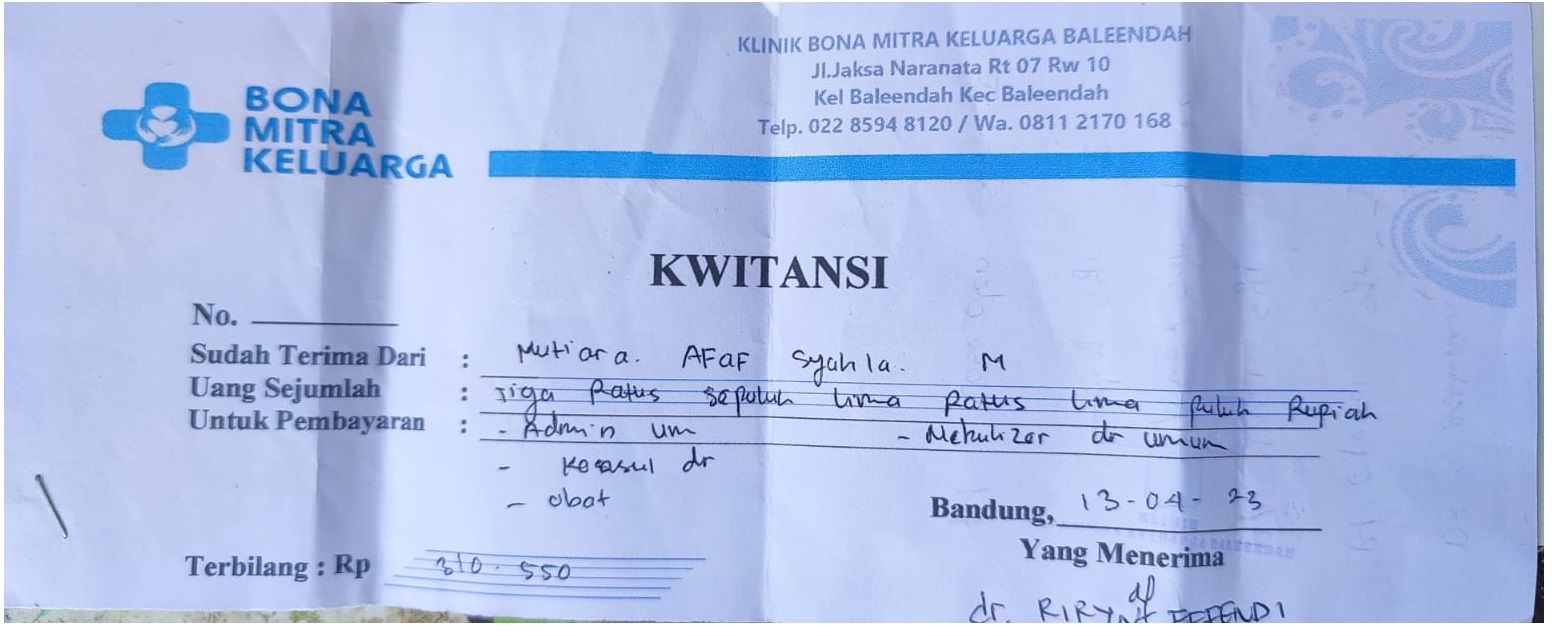 KLINIK BONA MITRA KELUARGA BALEENDAH
Jl.Jaksa Naranata Rt 07 Rw 10
Kel Baleendah Kec Baleendah
Telp. 022 8594 8120 / Wa. 0811 2170 168
BONA
MITRA
KELUARGA
KWITANSI
No.
Sudah Terima Dari : Mutiara. AFaF Syahla. M
Uang Sejumlah : Tiga Ratus sepuluh lima Ratus lima puluh Rupiah
Untuk Pembayaran : - Admin um - Nebulizer dr umum
- dr
- obat
Bandung, 13-04-23
Yang Menerima
Terbilang : Rp 310.550
dr. EFFENDI